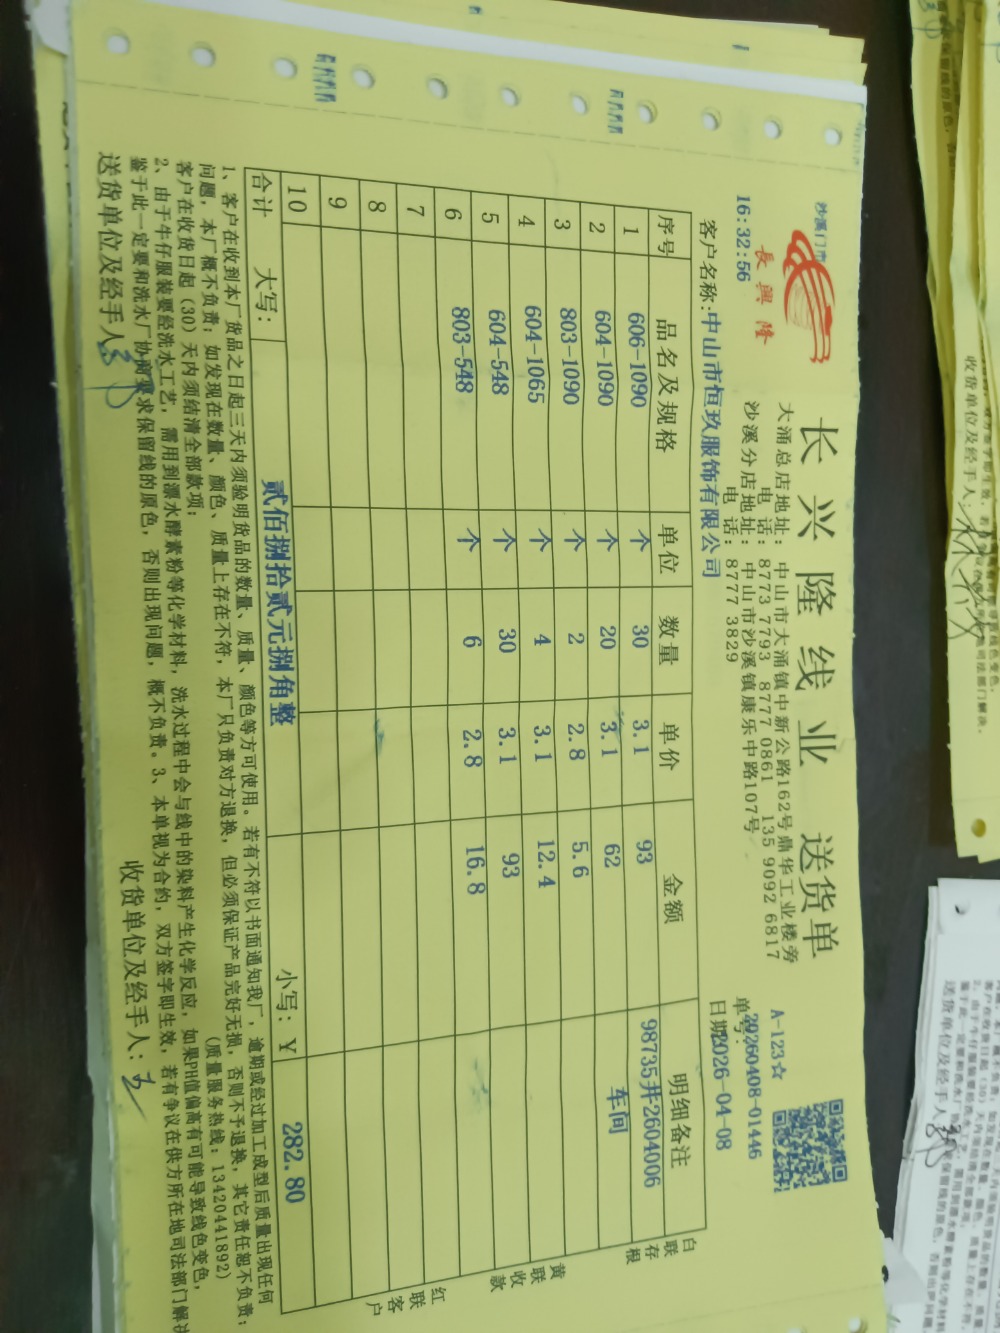 沙溪门市
長興隆
16:32:56
长兴隆线业 送货单
大涌总店地址：中山市大涌镇中新公路162号鼎华工业楼旁
电 话：8773 7793 8777 0861 135 9092 6817
沙溪分店地址：中山市沙溪镇康乐中路107号
电 话：8777 3829
A-123☆
单号：20260408-01446
日期：2026-04-08
客户名称:中山市恒玖服饰有限公司
序号 品名及规格 单位 数量 单价 金额 明细备注
1 606-1090 个 30 3.1 93 98735井2604006
2 604-1090 个 20 3.1 62 车间
3 803-1090 个 2 2.8 5.6
4 604-1065 个 4 3.1 12.4
5 604-548 个 30 3.1 93
6 803-548 个 6 2.8 16.8
7
8
9
10
合计 大写： 贰佰捌拾贰元捌角整 小写：Y 282.80
白联存根
黄联收款
红联客户
1、客户在收到本厂货品之日起三天内须验明货品的数量、质量、颜色等方可使用。若有不符以书面通知我厂，逾期或经过加工成型后质量出现任何
问题，本厂概不负责；如发现在数量、颜色、质量上存在不符，本厂只负责对方退换，但必须保证产品完好无损，否则不予退换，其它责任恕不负责；
客户在收货日起（30）天内须结清全部款项； （质量服务热线：13420441892）
2、由于牛仔服装要经洗水工艺，需用到漂水酵素粉等化学材料，洗水过程中会与线中的染料产生化学反应，如果PH值偏高有可能导致线色变色，
鉴于此一定要和洗水厂协商要求保留线的原色，否则出现问题，概不负责。3、本单视为合约，双方签字即生效，若有争议在供方所在地司法部门解决
送货单位及经手人 收货单位及经手人：
收货单位及经手人：
送货单位及经手人